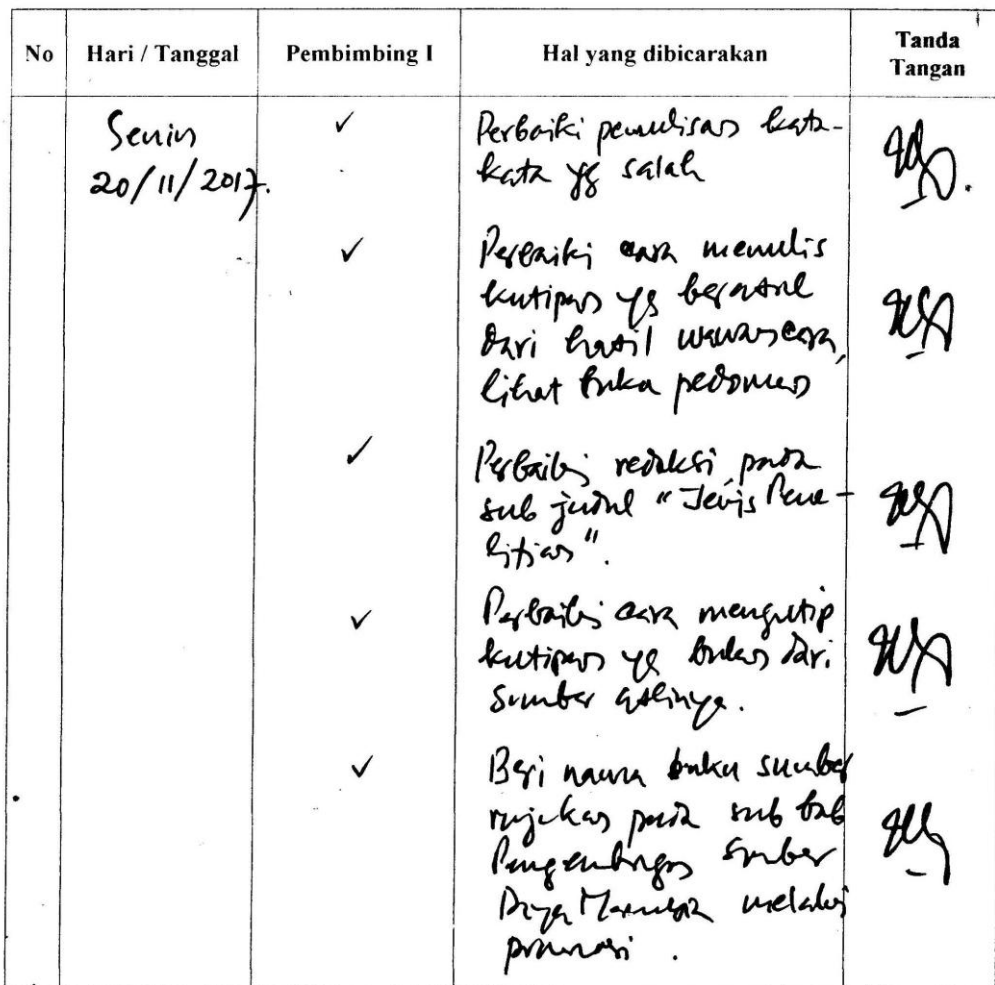 No Hari / Tanggal Pembimbing I Hal yang dibicarakan Tanda Tangan
Senin
20/11/2017.
✓ Perbaiki penulisan kata-
kata yg salah
✓ Perbaiki cara menulis
kutipan yg berasal
dari hasil wawancara,
lihat buku pedoman
✓ Perbaiki redaksi pada
sub judul "Jenis Pene-
litian".
✓ Perbaiki cara mengutip
kutipan yg bukan dari
sumber aslinya.
✓ Beri nama buku sumber
rujukan pada sub bab
Pengembangan Sumber
Daya Manusia melalui
promosi.